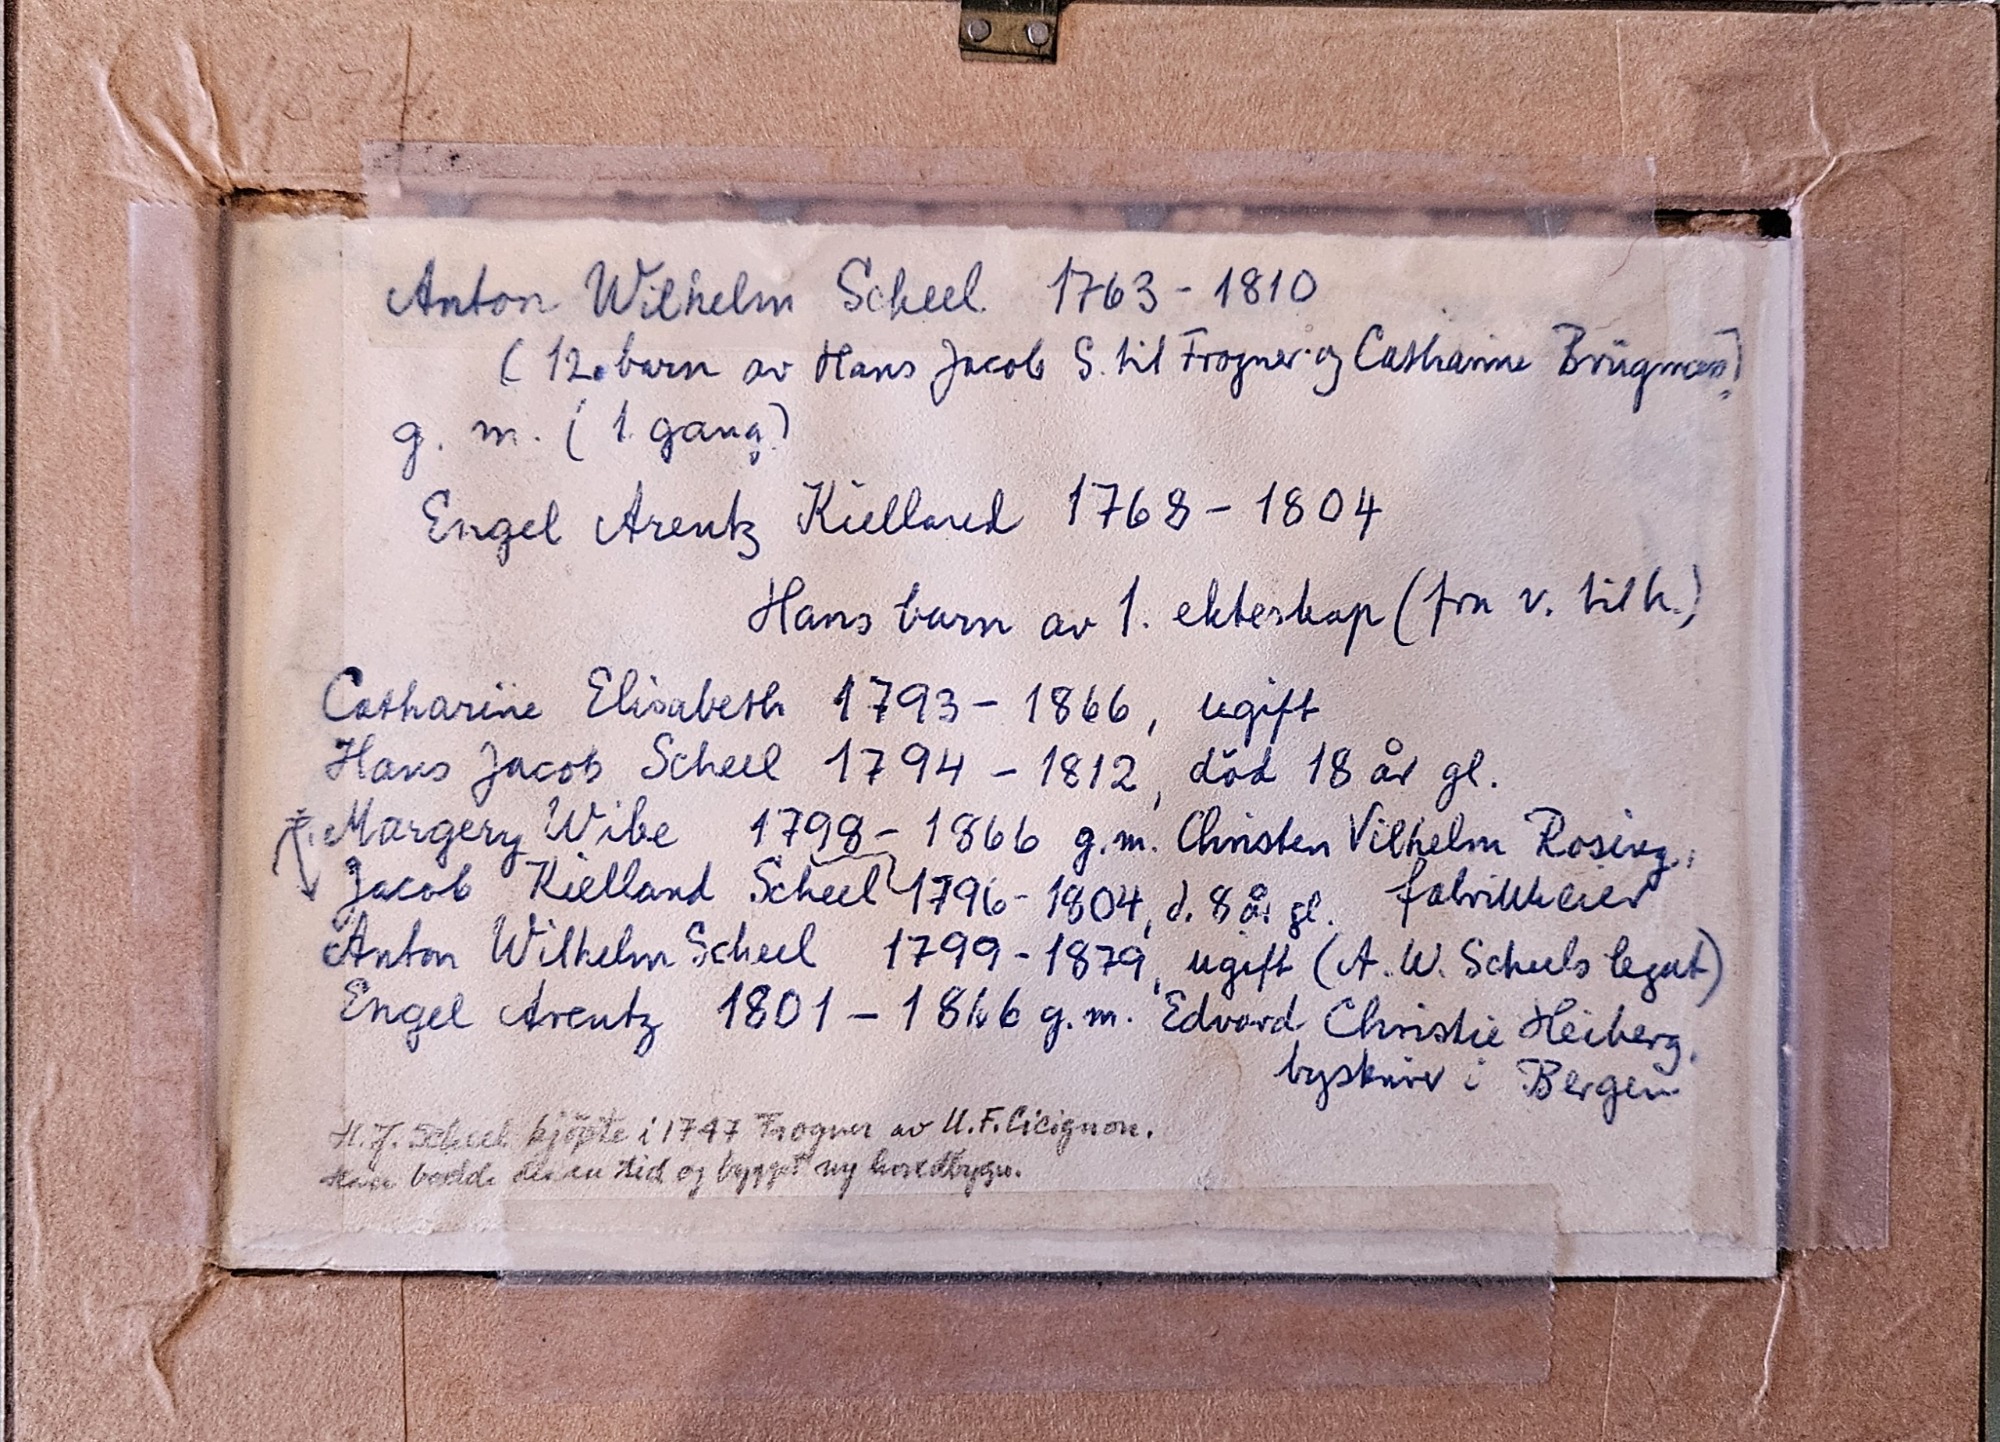 1874.
Anton Wilhelm Scheel 1763 - 1810
(12. barn av Hans Jacob S. til Frogner og Catharine Brügman)
g. m. (1. gang)
Engel Arentz Kielland 1768 - 1804
Hans barn av 1. ekteskap (fra v. til h.)
Catharine Elisabeth 1793 - 1866, ugift
Hans Jacob Scheel 1794 - 1812, död 18 år gl.
Margery Wibe 1798 - 1866 g.m. Christen Vilhelm Rosing,
Jacob Kielland Scheel 1796 - 1804, d. 8 år gl. fabrikkeier
Anton Wilhelm Scheel 1799 - 1879, ugift (A. W. Scheels legat)
Engel Arentz 1801 - 1866 g.m. Edvard Christie Heiberg,
byskriver i Bergen
H. J. Scheel kjöpte i 1747 Frogner av U. F. Cicignon.
Han bodde der en tid og bygget ny hovedbygn.